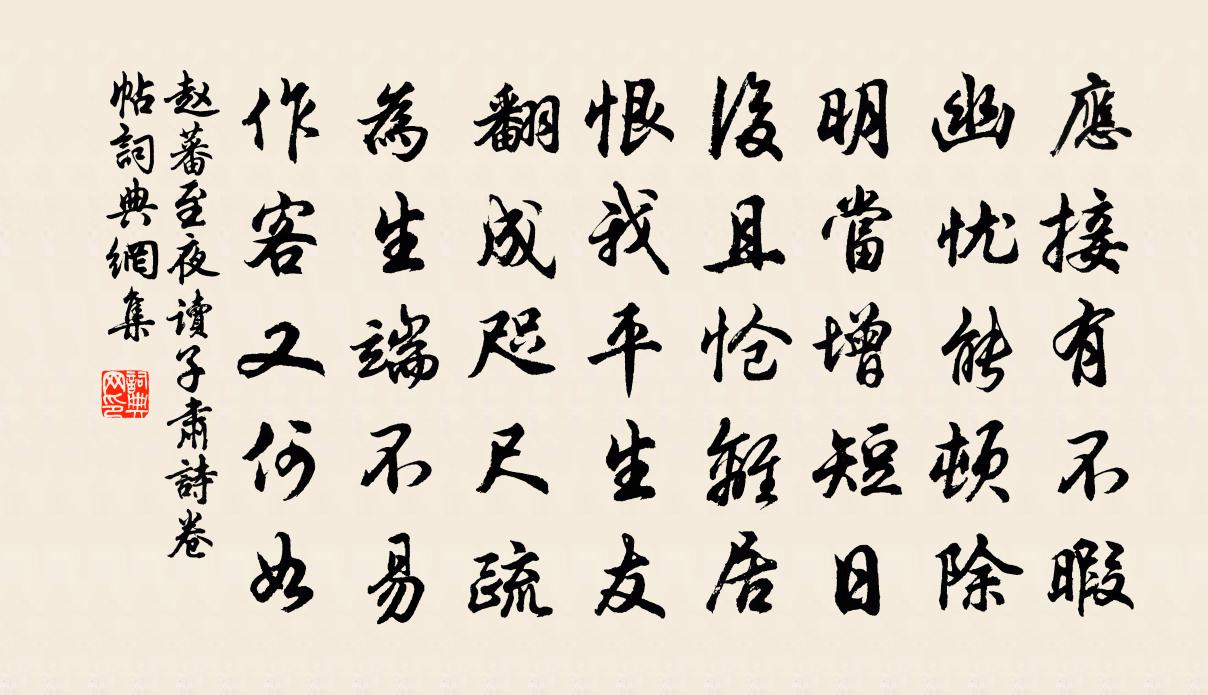 應接有不暇
幽忧能頓除
明當增短日
後且怆離居
恨我平生友
翻成咫尺疏
為生端不易
作客又何如
赵蕃至夜讀子肃詩卷
帖詞典網集
詞典网印